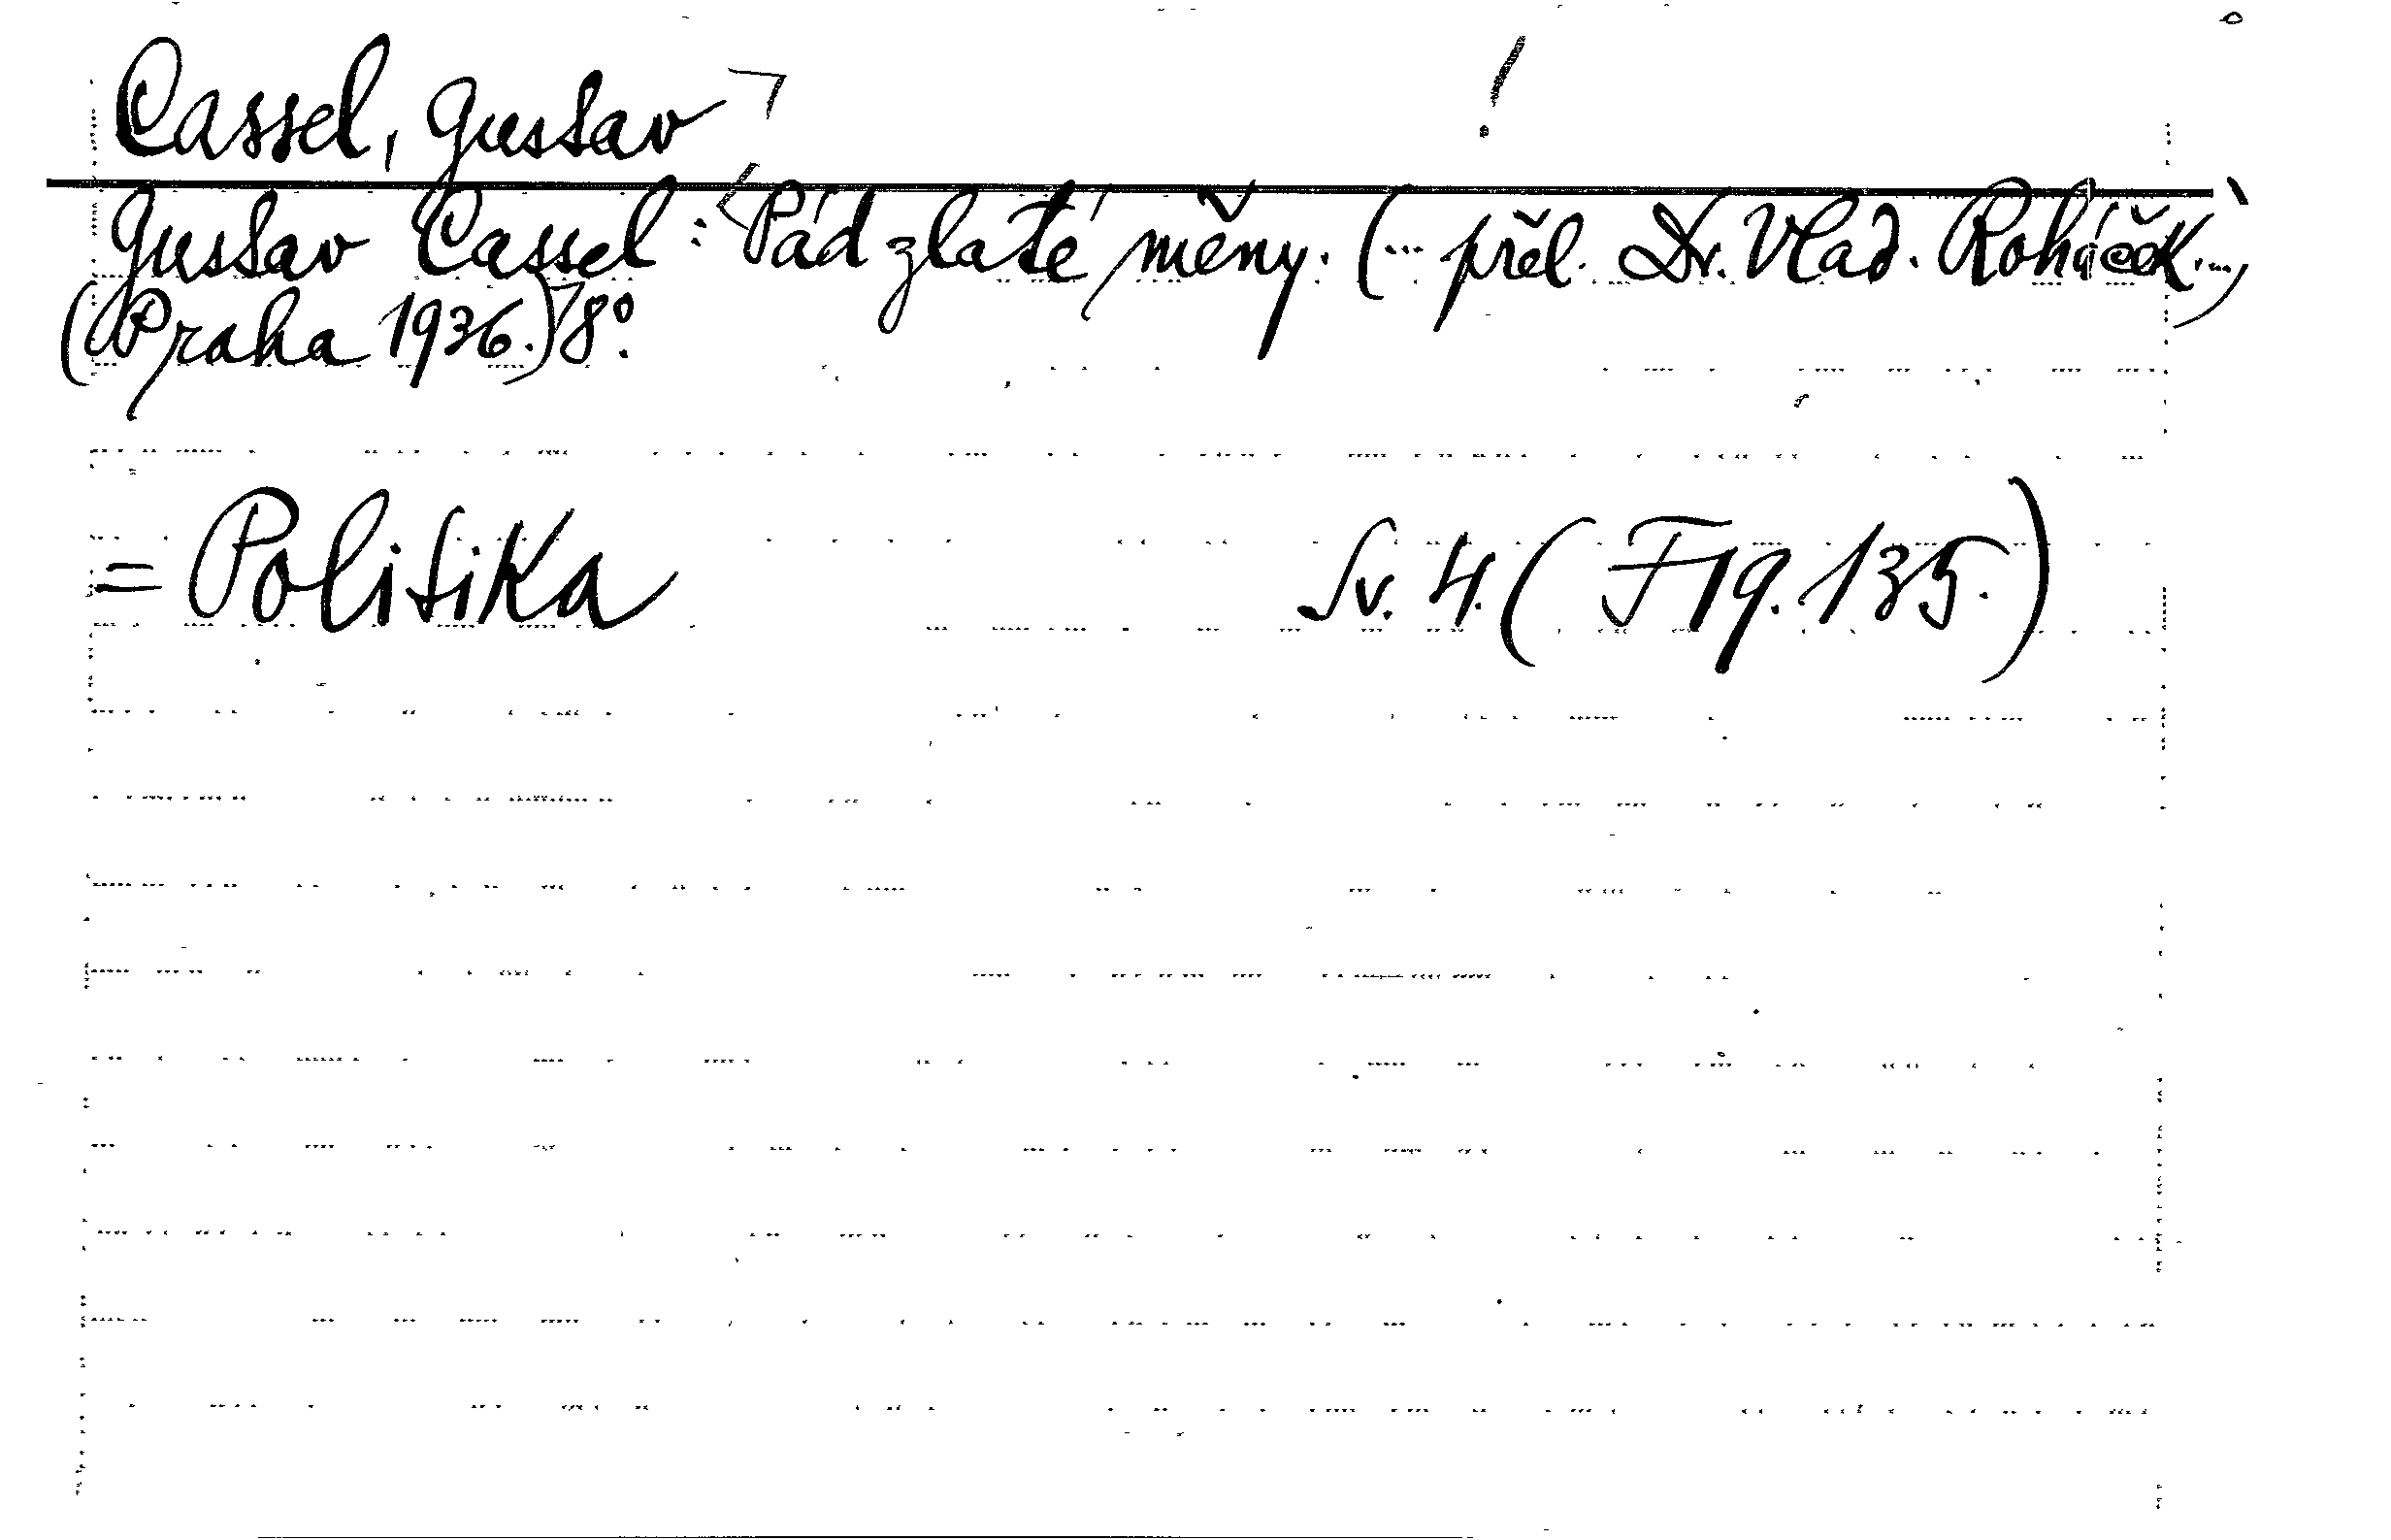 Cassel, Gustav !
Gustav Cassel: Pád zlaté měny. (... přel. Dr. Vlad. Roháček...)
(Praha 1936.) 8°.
= Politika Sv. 4. ( F 19. 135.)